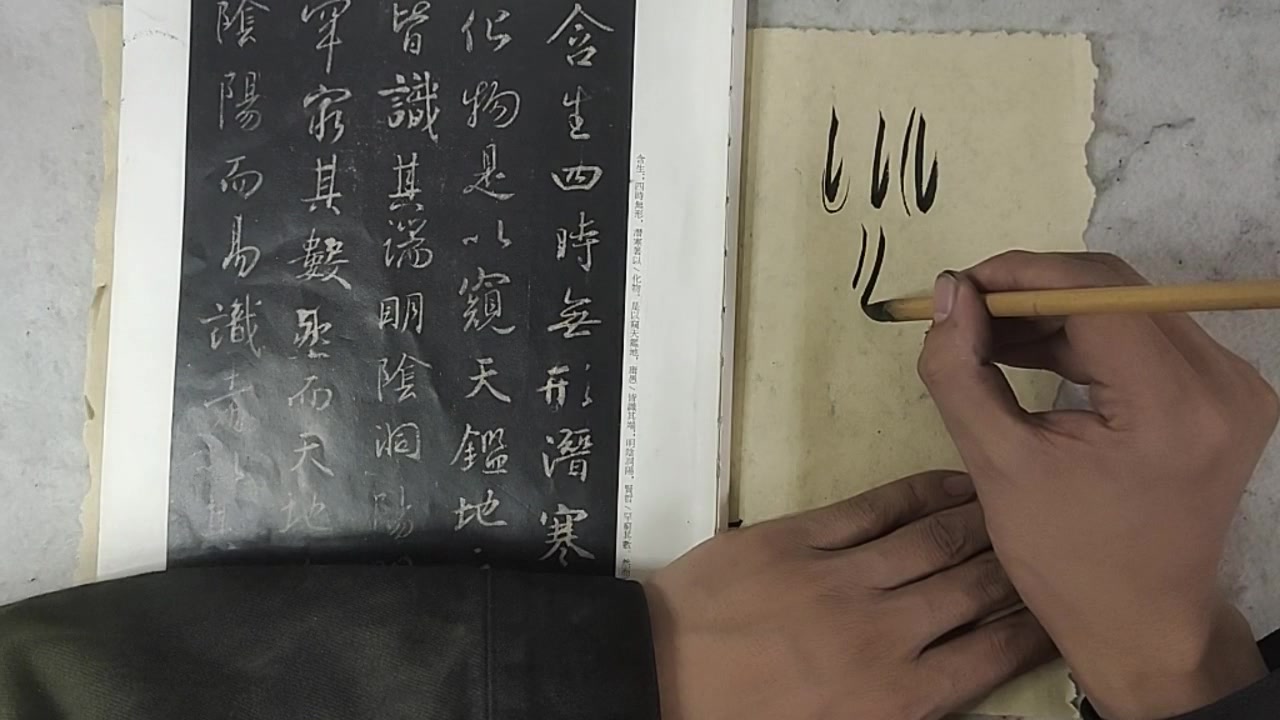 含生四時無形潛寒
化物是以窺天鑑地
皆識其端明陰洞陽
罕窮其數然而天地
陰陽而易識者以其
含生。四時無形，潛寒暑以/化物。是以窺天鑑地，庸愚/皆識其端，明陰洞陽，賢哲/罕窮其數，然而